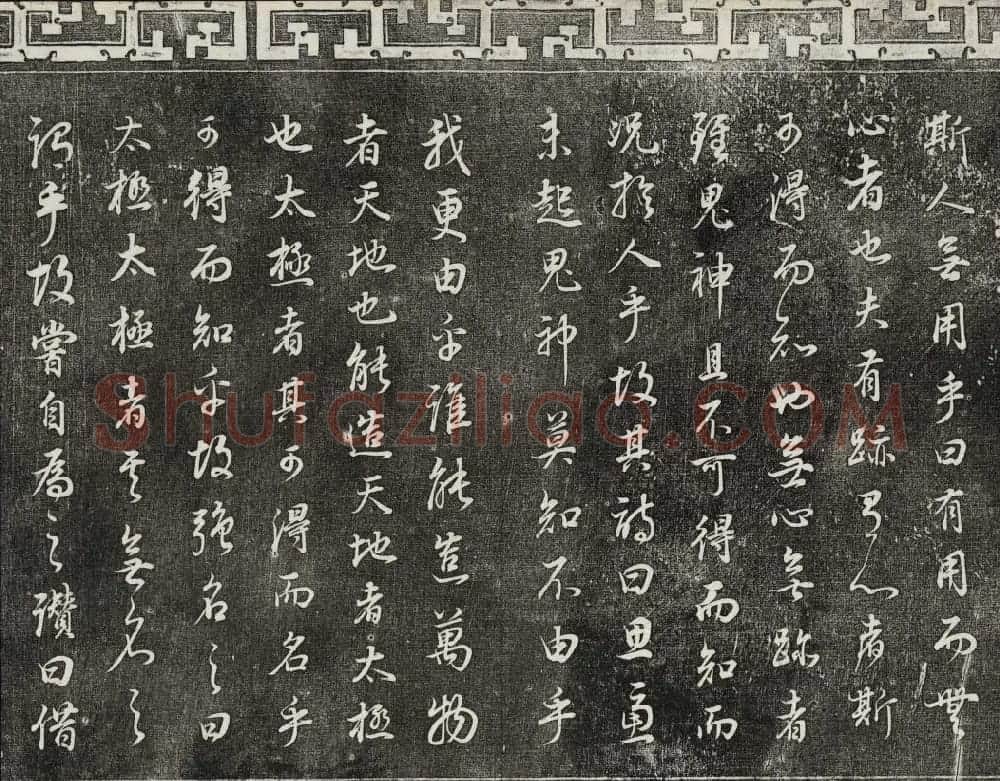 斯人無用乎曰有用而無
心者也夫有跡有心者斯
可得而知也無心無跡者
雖鬼神且不可得而知而
況於人乎故其詩曰思慮
未起鬼神莫知不由乎
我更由乎誰能造萬物
者天地也能造天地者太極
也太極者其可得而名乎
可得而知乎故強名之曰
太極太極者其無名之
謂乎故嘗自為之讚曰借
Shufaziliao.COM